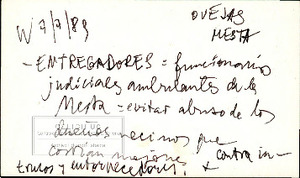 W 7/7/89
OVEJAS
MESTA
- ENTREGADORES = funcionarios
judiciales ambulantes de la
Mesta = evitar abuso de los
dueños vecinos que
contra in-
trusos y entorpecedores.